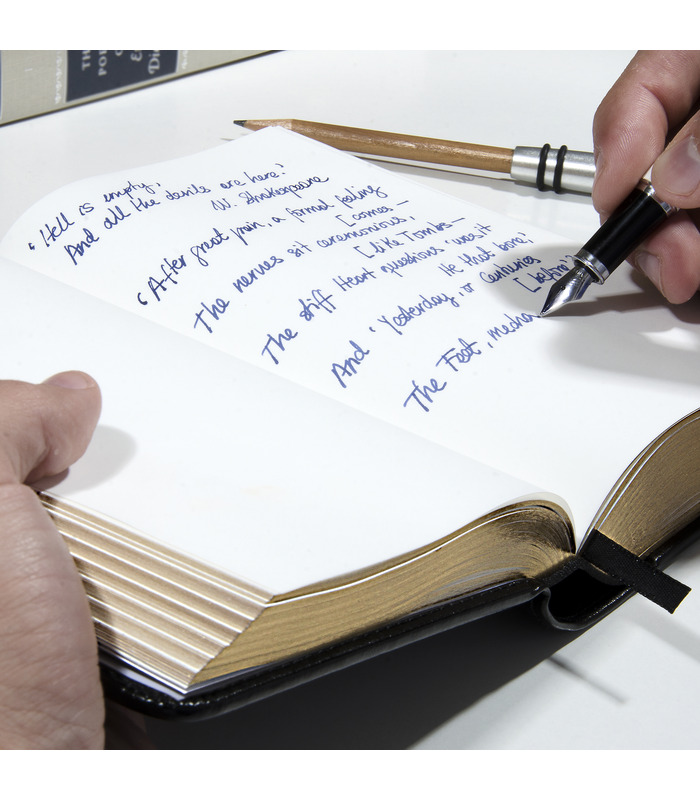 TH
PO
O
E
Di
'Hell is empty,
And all the devils are here.'
W. Shakespeare
'After great pain, a formal feeling
[comes –
The nerves sit ceremonious,
[like Tombs –
The stiff Heart questions 'was it
He that bore,'
And 'Yesterday, or Centuries
[before'?
The Feet, mechan